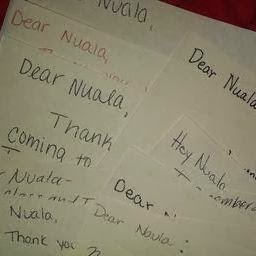 Nuala,
Dear Nuala,
Dear Nuala,
Dear Nuala,
Thank
coming to
Hey Nuala,
Nuala-
Dear
Nuala,
Dear Nuula:
Thank you